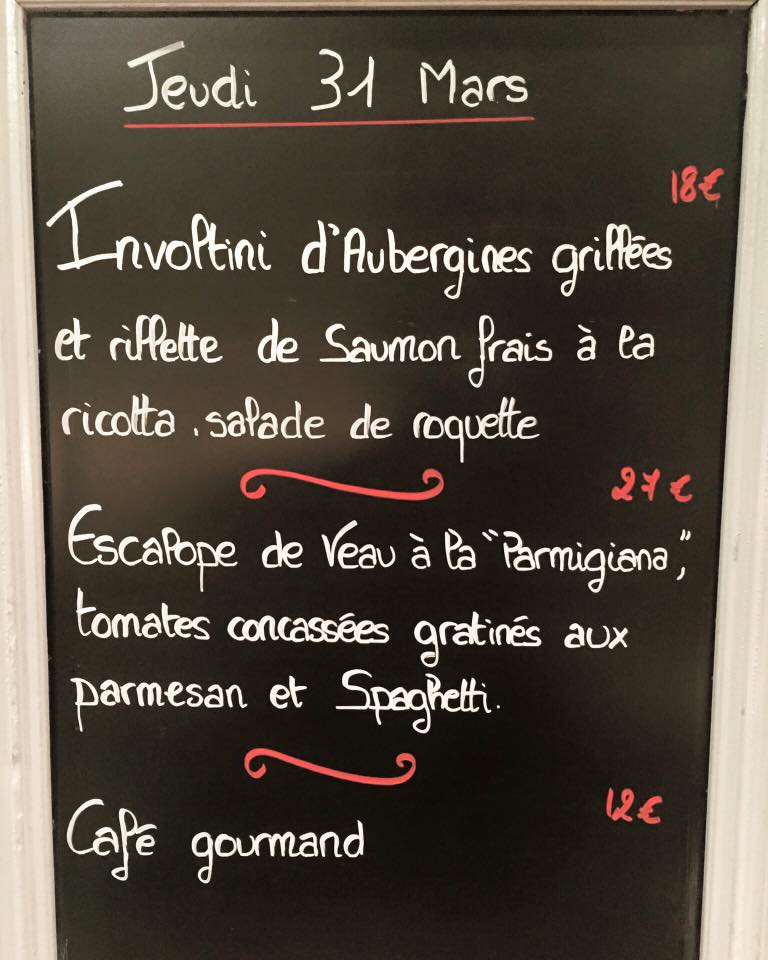 Jeudi 31 Mars
18€
Involtini d'Aubergines grillées
et rillette de Saumon frais à la
ricotta . salade de roquette
27€
Escalope de Veau à la "Parmigiana",
tomates concassées gratinés aux
parmesan et Spaghetti.
12€
Café gourmand